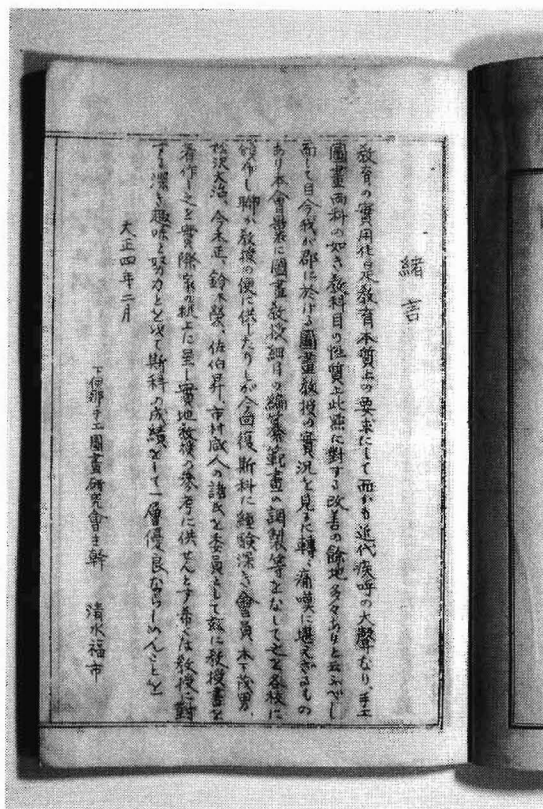 緒言
教育の實用化是教育本質上の要求にして而かも近代疾呼の大聲なり、手工
圖畫両科の如き教科目の性質上此点に對する改善の餘地多々ありと云ふべし
而して目今我が郡に於ける圖畫教授の實況を見るに轉、痛嘆に堪えざるもの
あり本會嚮に圖畫教授細目の編纂範畫の調製等をなして之を各校に
頒布し聊か教授の便に供したりしが今回復斯科に經験深き會員木下茂男、
松沢太治、今木正、鈴木榮、佐伯昇、市村咸人の諸氏を委員として玆に教授書を
著作し之を實際家の机上に呈し實地教授の参考に供せんとす希くは教授に對
する深き趣味と努力とを以て斯科の成績をして一層優良ならしめんことを
大正四年二月
下伊那手工圖畫研究會主幹 清水福市